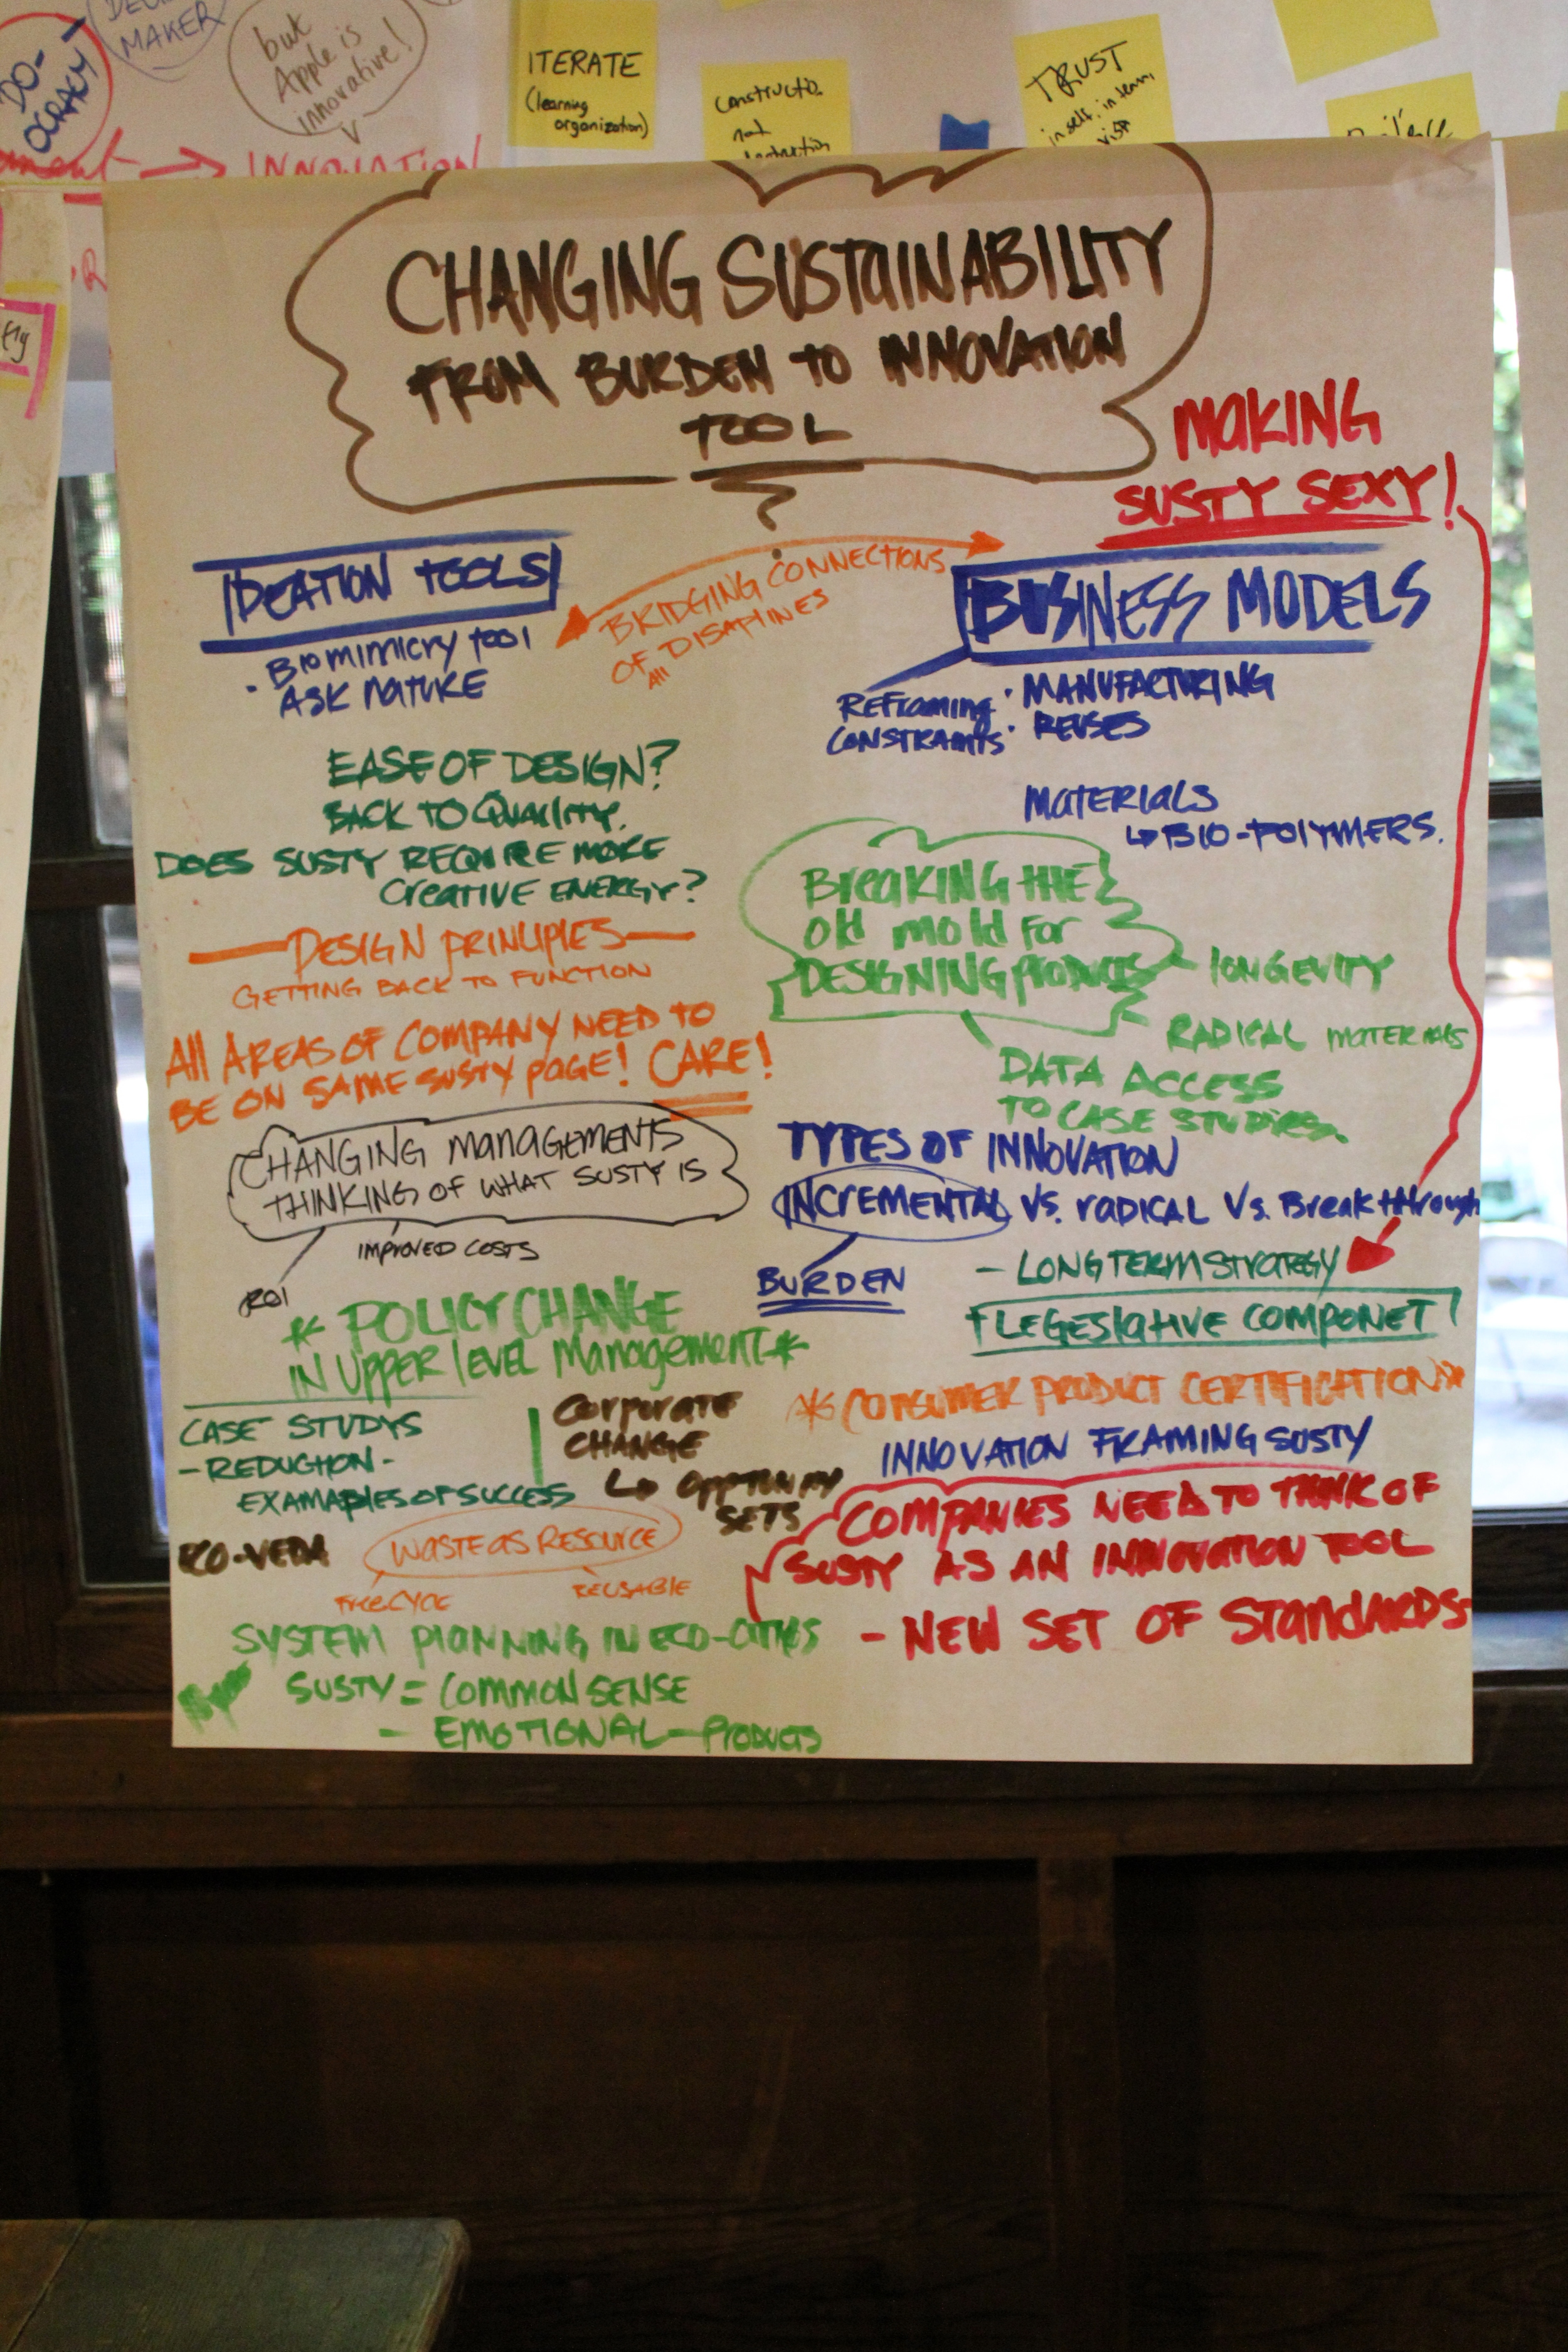 DO-
OCRACY
MAKER
but
Apple is
innovative!
INNOVATION
ITERATE
(learning
organization)
not
TRUST
in self, in team,
CHANGING SUSTAINABILITY
FROM BURDEN TO INNOVATION
TOOL
MAKING
SUSTY SEXY!
IDEATION TOOLS
· Biomimicry tool
ASK NATURE
BRIDGING CONNECTIONS
OF All DISAPLINES
BUSINESS MODELS
REFRAMING
CONSTRAINTS
· MANUFACTURING
· REUSES
MATERIALS
↳ BIO-POLYMERS.
EASE OF DESIGN?
BACK TO QUALITY.
DOES SUSTY REQUIRE MORE
CREATIVE ENERGY?
Breaking the
old mold for
DESIGNING PRODUCTS
LONGEVITY
RADICAL MATERIALS
DATA ACCESS
TO CASE STUDIES.
DESIGN PRINLIPLES
GETTING BACK TO FUNCTION
All AREAS OF COMPANY NEED TO
BE ON SAME SUSTY PAGE! CARE!
CHANGING MANAGEMENTS
THINKING OF WHAT SUSTY IS
IMPROVED COSTS
ROI
TYPES OF INNOVATION
INCREMENTAL VS. RADICAL VS. Breakthrough
BURDEN
- LONG TERM STRATEGY
LEGESLATIVE COMPONET
* POLICY CHANGE
IN UPPER LEVEL MANAGEMENT *
* CONSUMER PRODUCT CERTIFICATION *
CASE STUDYS
- REDUCTION -
EXAMAPLES OF SUCCESS
CORPORATE
CHANGE
SETS
INNOVATION FRAMING SUSTY
COMPANIES NEED TO THINK OF
SUSTY AS AN INNOVATION TOOL
- NEW SET OF STANDARDS-
ECO-VEDA
WASTE AS RESOURCE
FREECYCLE
REUSABLE
SYSTEM PLANNING IN ECO-CITIES
SUSTY = COMMON SENSE
- EMOTIONAL - PRODUCTS